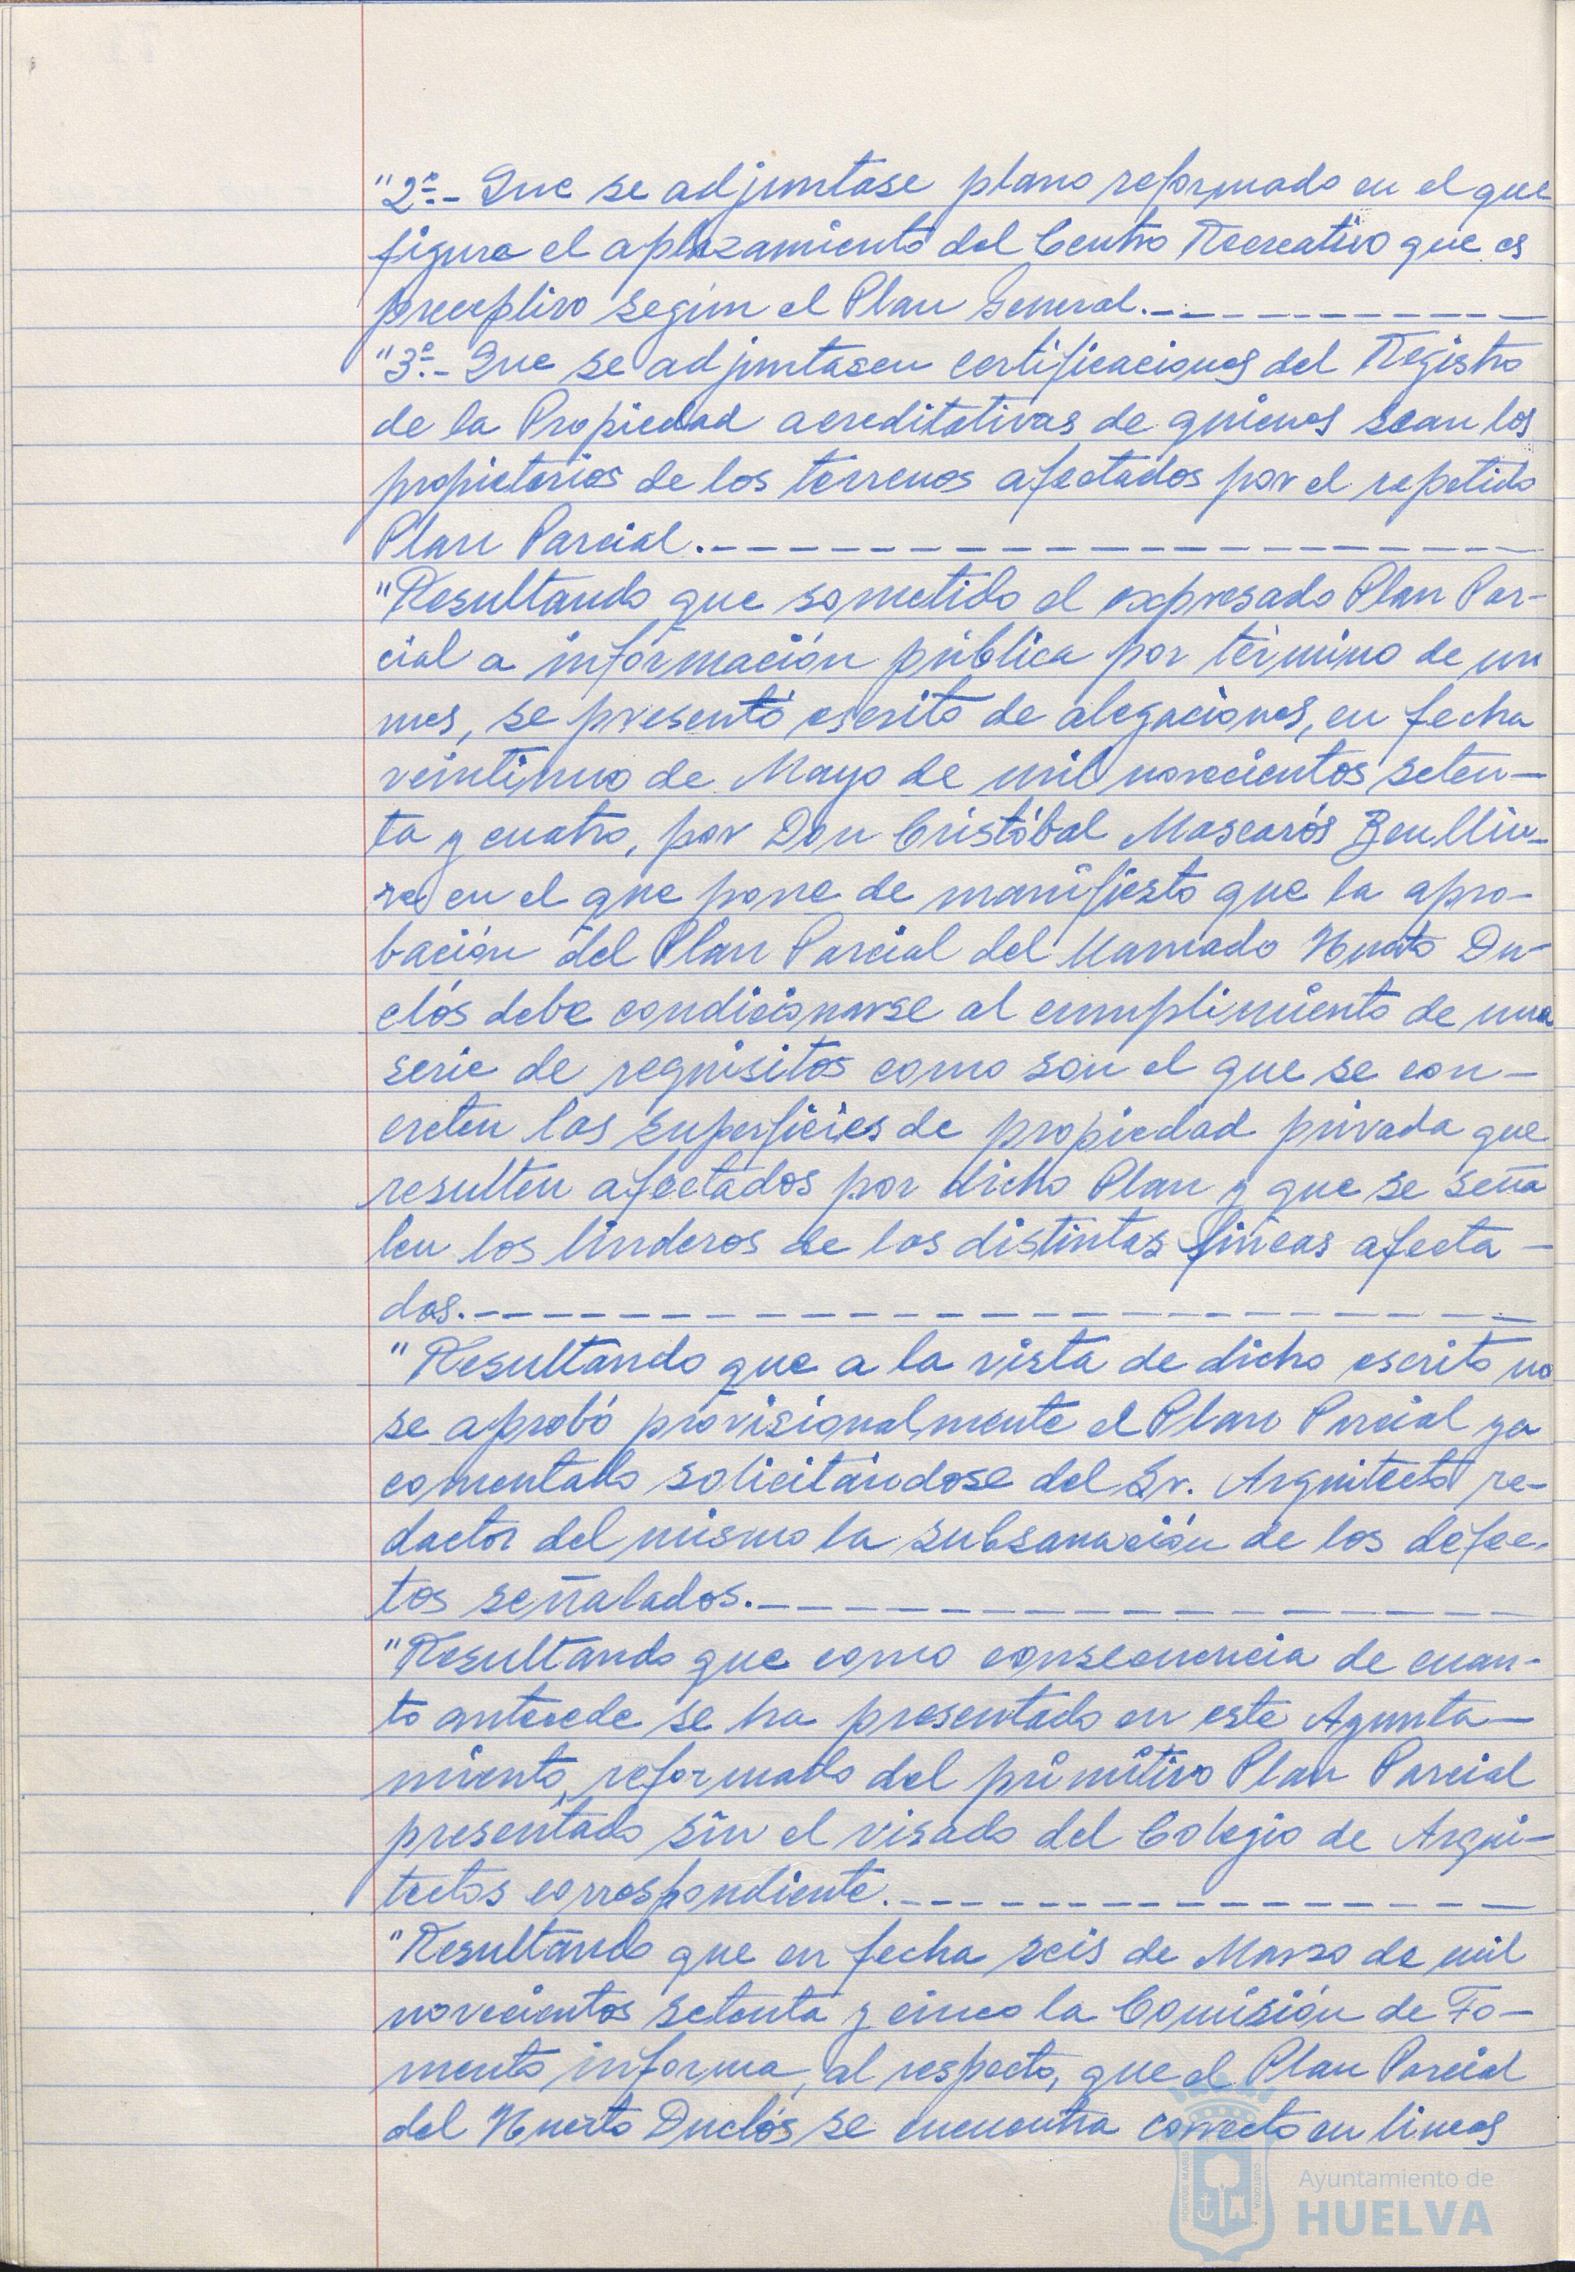 "2º.- Que se adjuntase plano reformado en el que
figure el aplazamiento del Centro Recreativo que es
preceptivo según el Plan General.-
"3º.- Que se adjuntasen certificaciones del Registro
de la Propiedad acreditativas de quienes sean los
propietarios de los terrenos afectados por el repetido
Plan Parcial.-
"Resultando que sometido el expresado Plan Par-
cial a información pública por término de un
mes, se presentó escrito de alegaciones, en fecha
veintiuno de Mayo de mil novecientos seten-
ta y cuatro, por Don Cristóbal Mascarós Benlliu-
re en el que pone de manifiesto que la apro-
bación del Plan Parcial del llamado Huerto Du-
clós debe condicionarse al cumplimiento de una
serie de requisitos como son el que se con-
creten las superficies de propiedad privada que
resulten afectados por dicho Plan y que se seña
len los linderos de las distintas fincas afecta-
das.-
"Resultando que a la vista de dicho escrito no
se aprobó provisionalmente el Plan Parcial ya
comentado solicitándose del Sr. Arquitecto re-
dactor del mismo la subsanación de los defec-
tos señalados.-
"Resultando que como consecuencia de cuan-
to antecede se ha presentado en este Ayunta-
miento, reformado del primitivo Plan Parcial
presentado sin el visado del Colegio de Arqui-
tectos correspondiente.-
"Resultando que en fecha seis de Marzo de mil
novecientos setenta y cinco la Comisión de Fo-
mento informa, al respecto, que el Plan Parcial
del Huerto Duclós se encuentra correcto en líneas
Ayuntamiento de
HUELVA